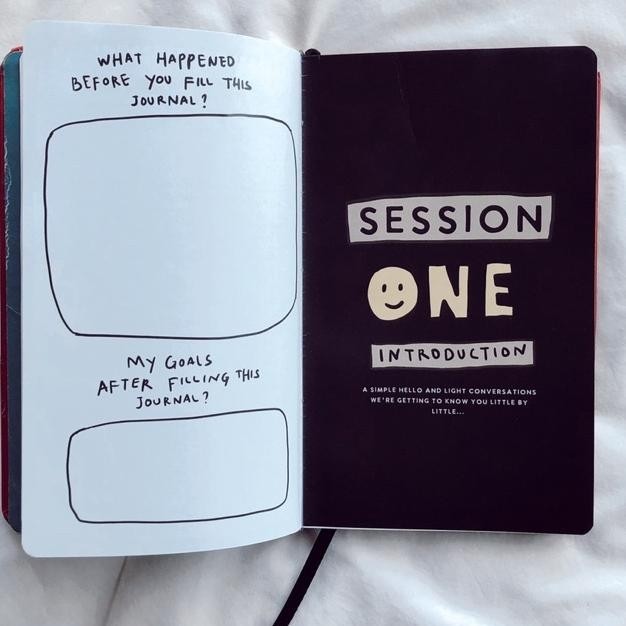 WHAT HAPPENED
BEFORE YOU FILL THIS
JOURNAL?
MY GOALS
AFTER FILLING THIS
JOURNAL?
SESSION
ONE
INTRODUCTION
A SIMPLE HELLO AND LIGHT CONVERSATIONS
WE'RE GETTING TO KNOW YOU LITTLE BY
LITTLE...